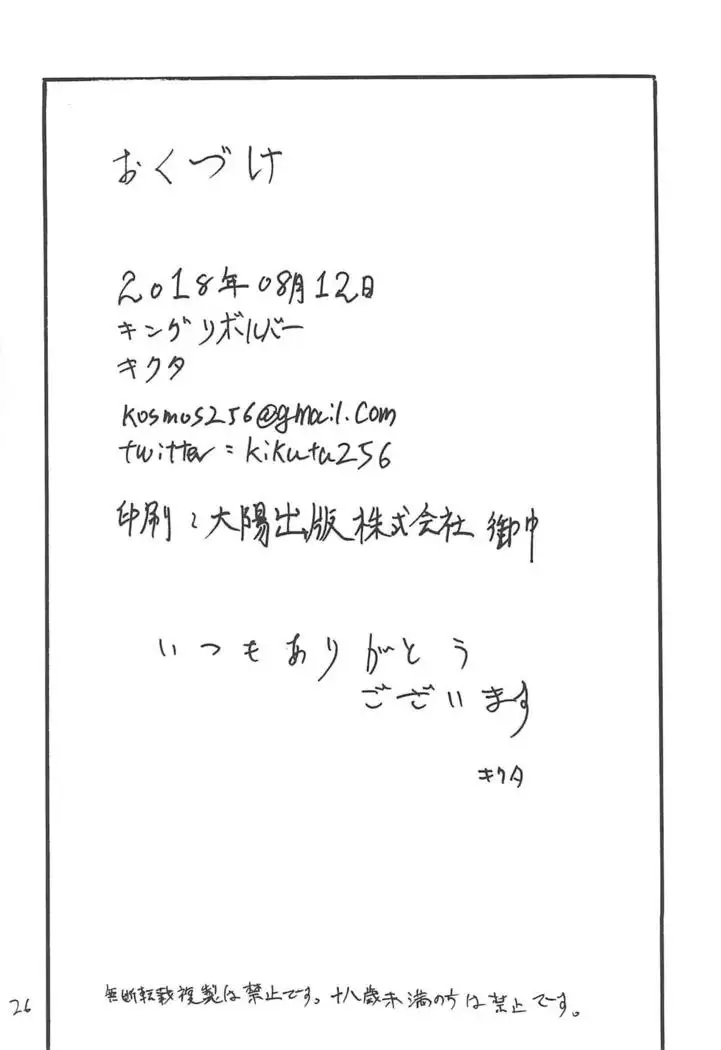 おくづけ
2018年08月12日
キングリボルバー
キクタ
kosmos256@gmail.com
twitter:kikuta256
印刷:大陽出版株式会社 御中
いつもありがとう
ございます
キクタ
無断転載複製は禁止です。十八歳未満の方は禁止です。
26